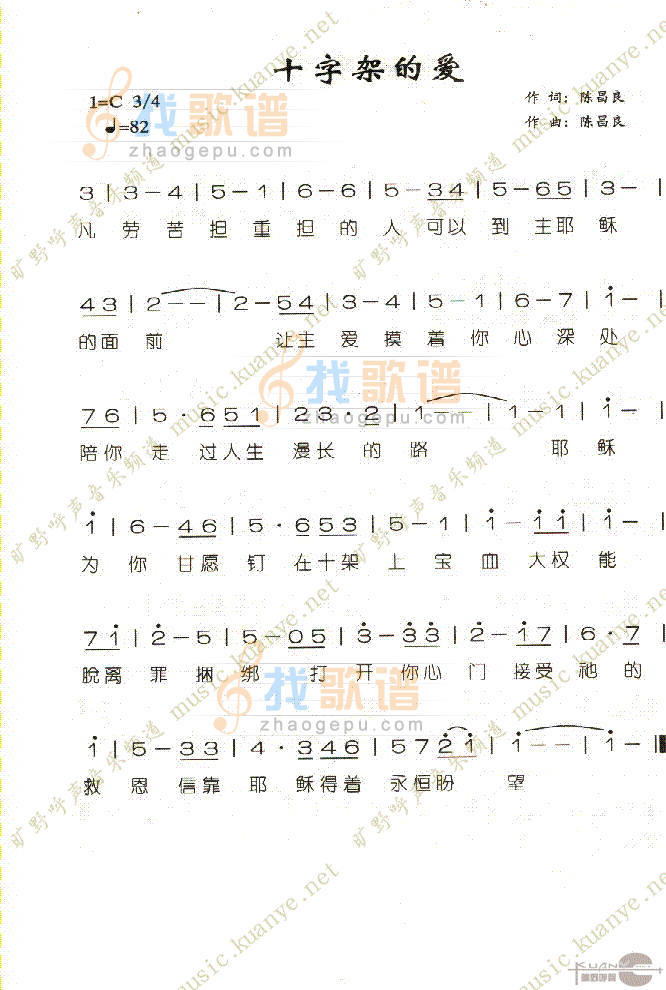 十字架的爱
1=C 3/4
♩=82
作 词：陈昌良
作 曲：陈昌良
3 | 3 – 4 | 5 – 1 | 6 – 6 | 5 – 34 | 5 – 65 | 3 – |
凡 劳 苦 担 重 担 的 人 可以 到 主耶 稣
43 | 2 – – | 2 – 54 | 3 – 4 | 5 – 1 | 6 – 7 | i – |
的面 前 让主 爱 摸 着 你 心 深 处
76 | 5 · 651 | 23 · 2 | 1 – – | 1 – 1 | i – |
陪你 走 过人生 漫长 的 路 耶 稣
i | 6 – 46 | 5 · 653 | 5 – i | i – ii | i – |
为 你 甘愿 钉 在十架 上 宝 血 大权 能
7i | 2 – 5 | 5 – 05 | 3 – 33 | 2 – i7 | 6 · 7 |
脱离 罪 捆 绑 打 开 你心 门 接受 祂 的
i | 5 – 33 | 4 · 346 | 572i | i – – | i – ‖
救 恩 信靠 耶 稣得着 永恒盼 望
找歌谱
zhaogepu.com
找歌谱
zhaogepu.com
找歌谱
zhaogepu.com
旷野呼声音乐频道 music.kuanye.net
KUANYE
旷野呼声